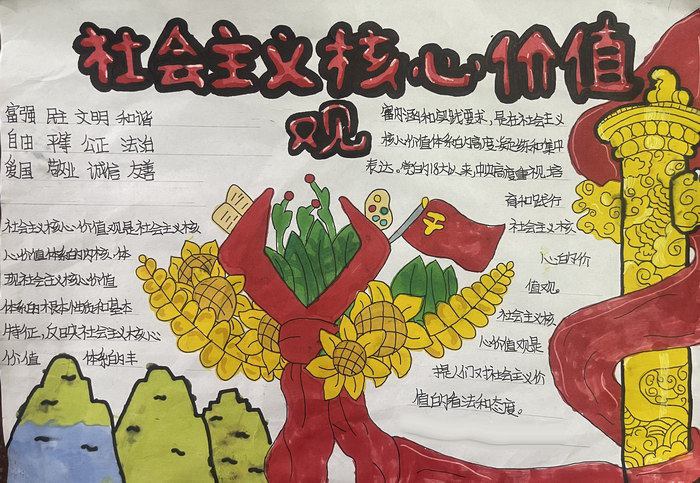 社会主义核心价值
观
富强 民主 文明 和谐
自由 平等 公正 法治
爱国 敬业 诚信 友善
社会主义核心价值观是社会主义核
心价值体系的内核,体
现社会主义核心价值
体系的根本性质和基本
特征,反映社会主义核心
价值 体系的丰
富内涵和实践要求,是社会主义
核心价值体系的高度凝练和集中
表达。党的18大以来,中央高度重视培
育和践行
社会主义核
心的价
值观。
社会主义核
心价值观是
指人们对社会主义价
值的看法和态度。